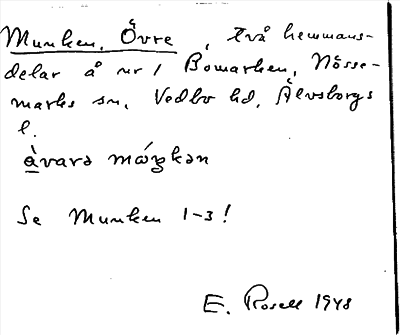 Munken, Övre, två hemmans-
delar å nr 1 Bomarken, Nösse-
marks sn, Vedbo hd, Älvsborgs
l.
å̀varə mǿŋkən
Se Munken 1-3!
E. Rosell 1948